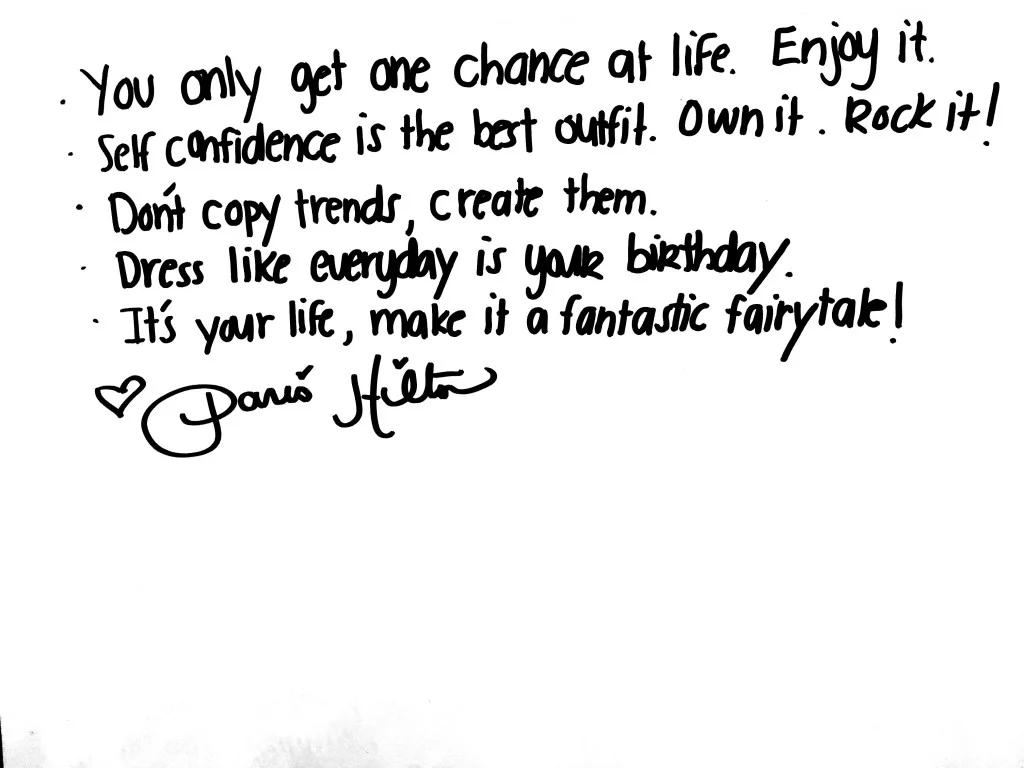 · You only get one chance at life. Enjoy it.
· Self confidence is the best outfit. Own it. Rock it!
· Don't copy trends, create them.
· Dress like everyday is your birthday.
· It's your life, make it a fantastic fairytale!
♡ Paris Hilton